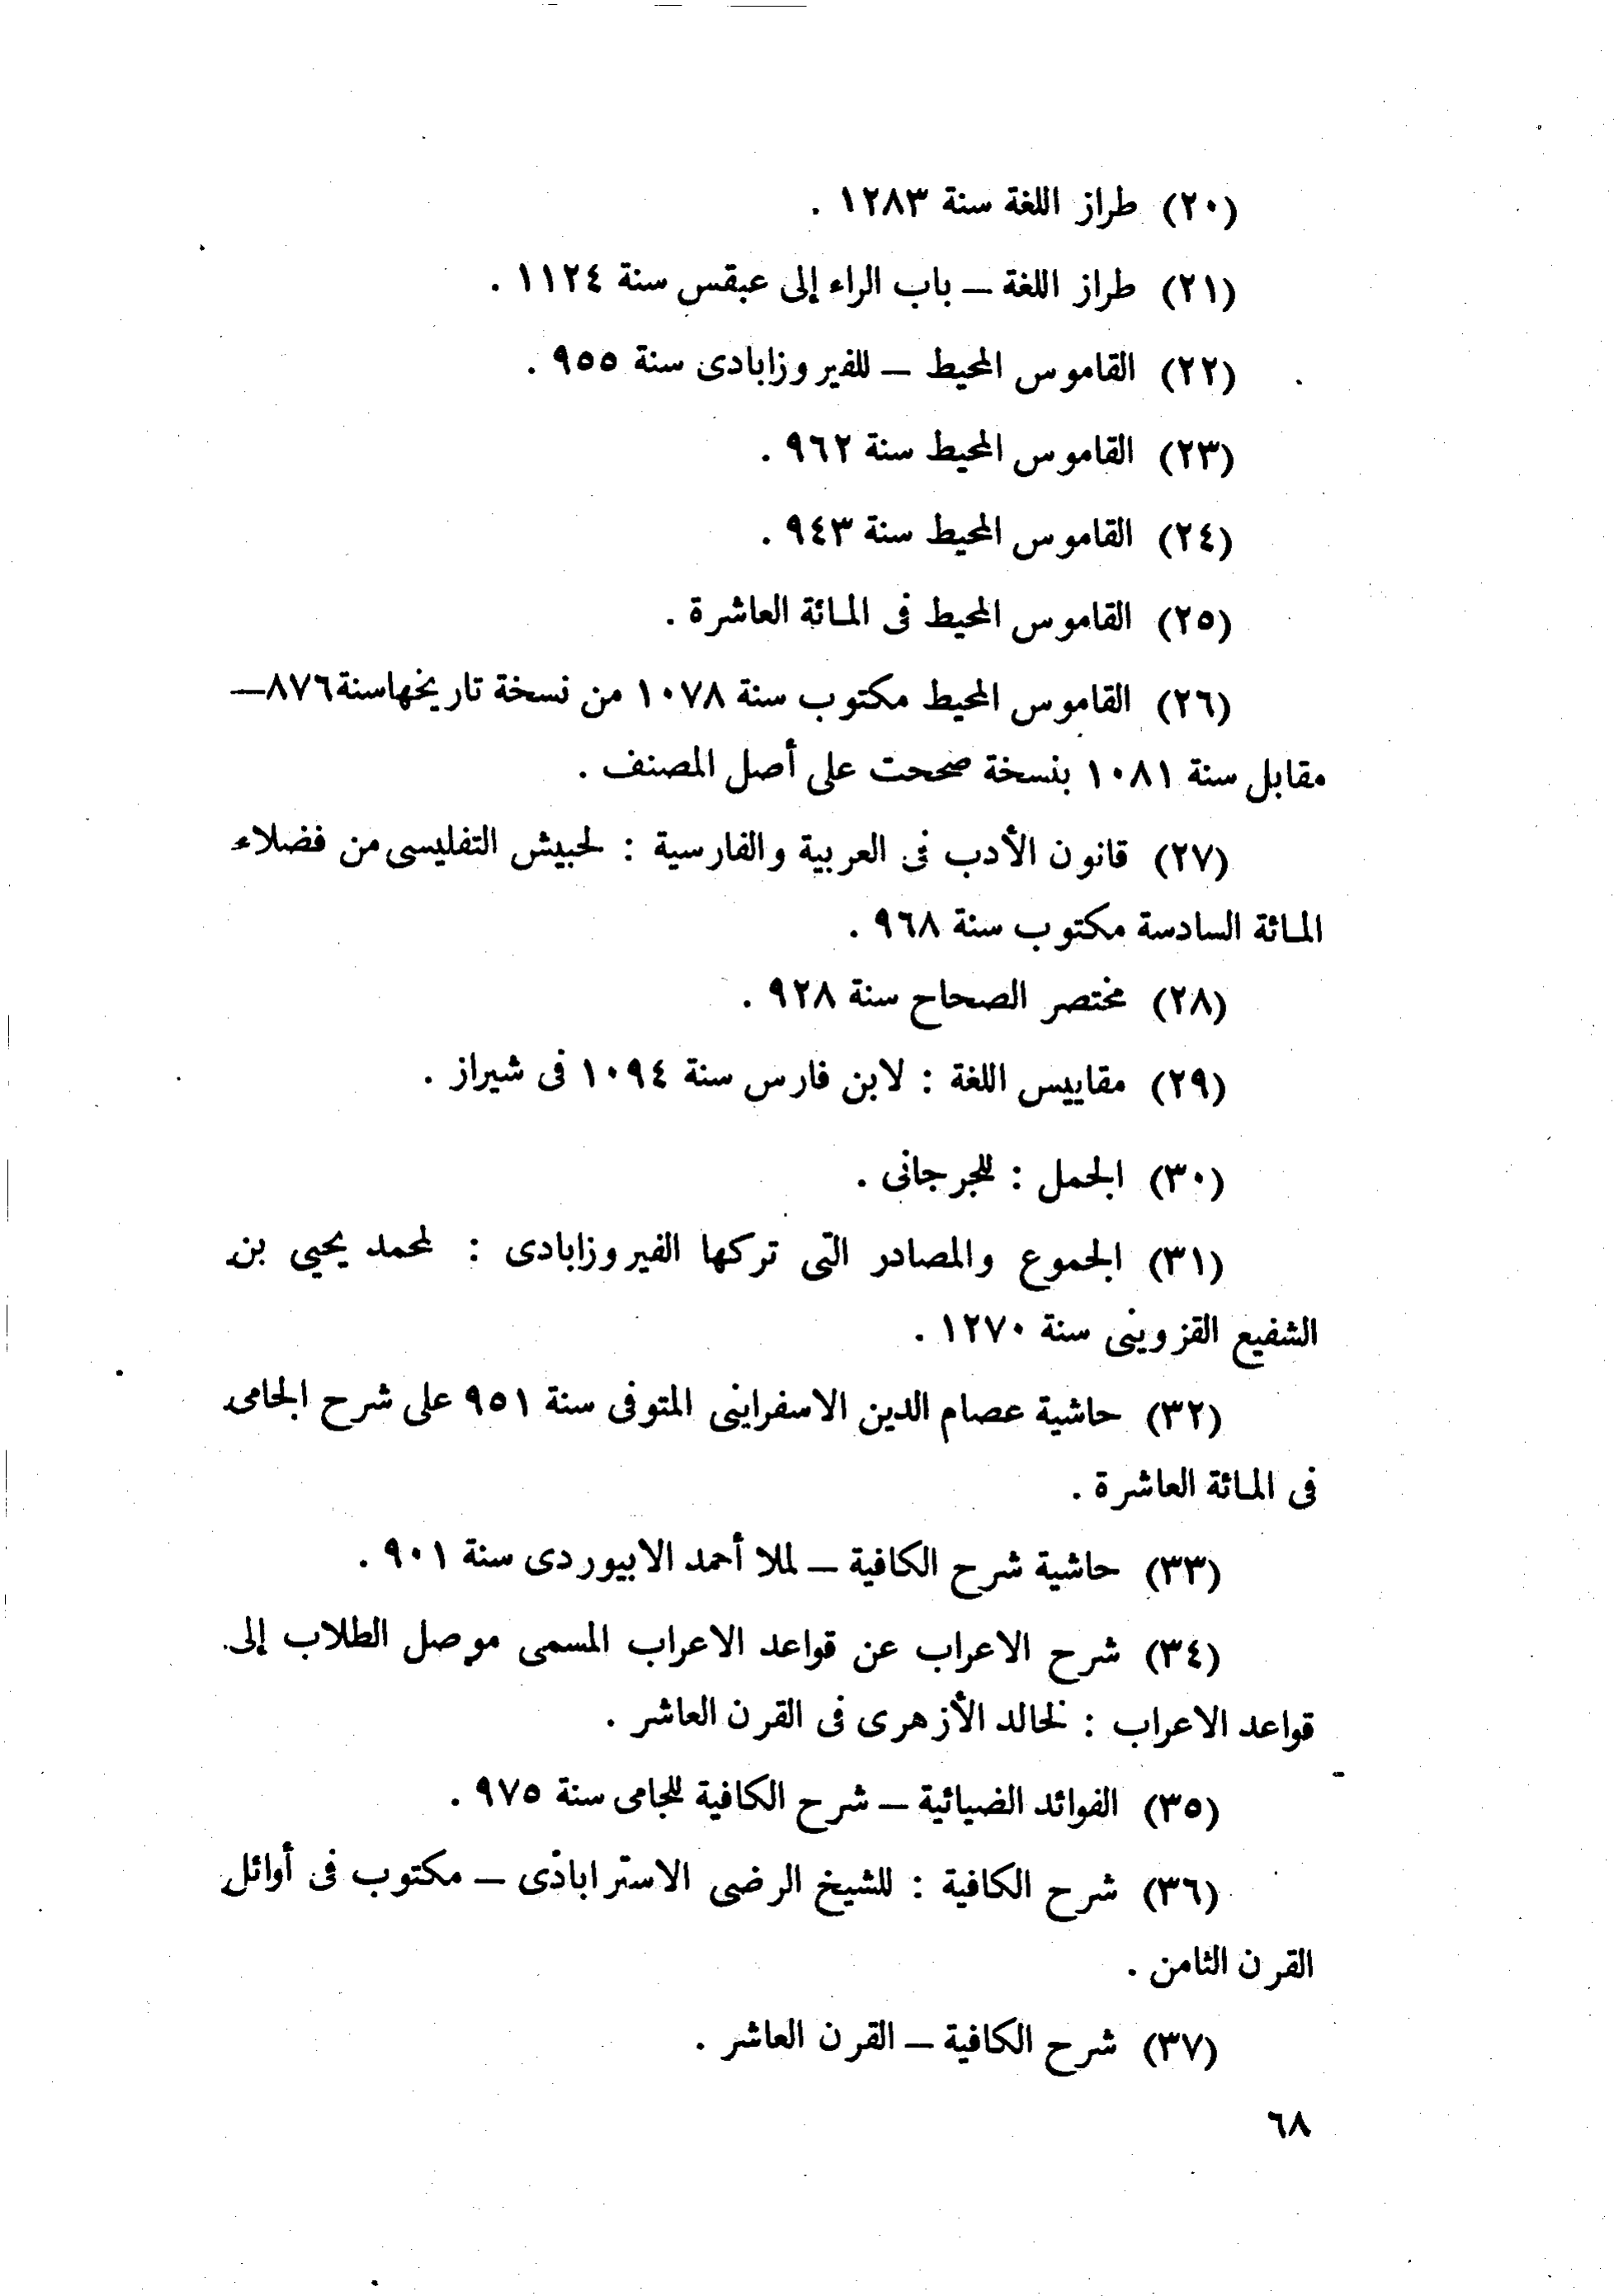 (٢٠) طراز اللغة سنة ١٢٨٣ .
(٢١) طراز اللغة — باب الراء إلى عبقس سنة ١١٢٤ .
(٢٢) القاموس المحيط — للفيروزابادى سنة ٩٥٥ .
(٢٣) القاموس المحيط سنة ٩٦٢ .
(٢٤) القاموس المحيط سنة ٩٤٣ .
(٢٥) القاموس المحيط فى المـائة العاشرة .
(٢٦) القاموس المحيط مكتوب سنة ١٠٧٨ من نسخة تاريخها سنة ٨٧٦ —
مقابل سنة ١٠٨١ بنسخة صححت على أصل المصنف .
(٢٧) قانون الأدب فى العربية والفارسية : لحبيش التفليسى من فضلاء
المـائة السادسة مكتوب سنة ٩٦٨ .
(٢٨) مختصر الصحاح سنة ٩٢٨ .
(٢٩) مقاييس اللغة : لابن فارس سنة ١٠٩٤ فى شيراز .
(٣٠) الجمل : للجرجانى .
(٣١) الجموع والمصادر التى تركها الفيروزابادى : لمحمد يحيى بن
الشفيع القزوينى سنة ١٢٧٠ .
(٣٢) حاشية عصام الدين الاسفراينى المتوفى سنة ٩٥١ على شرح الجامى
فى المـائة العاشرة .
(٣٣) حاشية شرح الكافية — لملا أحمد الابيوردى سنة ٩٠١ .
(٣٤) شرح الاعراب عن قواعد الاعراب المسمى موصل الطلاب إلى
قواعد الاعراب : لخالد الأزهرى فى القرن العاشر .
(٣٥) الفوائد الضيائية — شرح الكافية للجامى سنة ٩٧٥ .
(٣٦) شرح الكافية : للشيخ الرضى الاستراباذى — مكتوب فى أوائل
القرن الثامن .
(٣٧) شرح الكافية — القرن العاشر .
٦٨